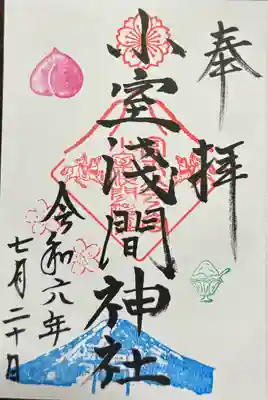 奉拝
小室浅間神社
令和六年
七月二十日